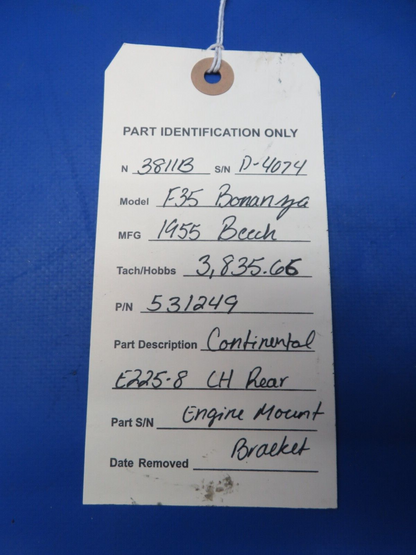 PART IDENTIFICATION ONLY
N 3811B S/N D-4074
Model F35 Bonanza
MFG 1955 Beech
Tach/Hobbs 3,835.66
P/N 531249
Part Description Continental
E225-8 LH Rear
Part S/N Engine Mount
Date Removed Bracket